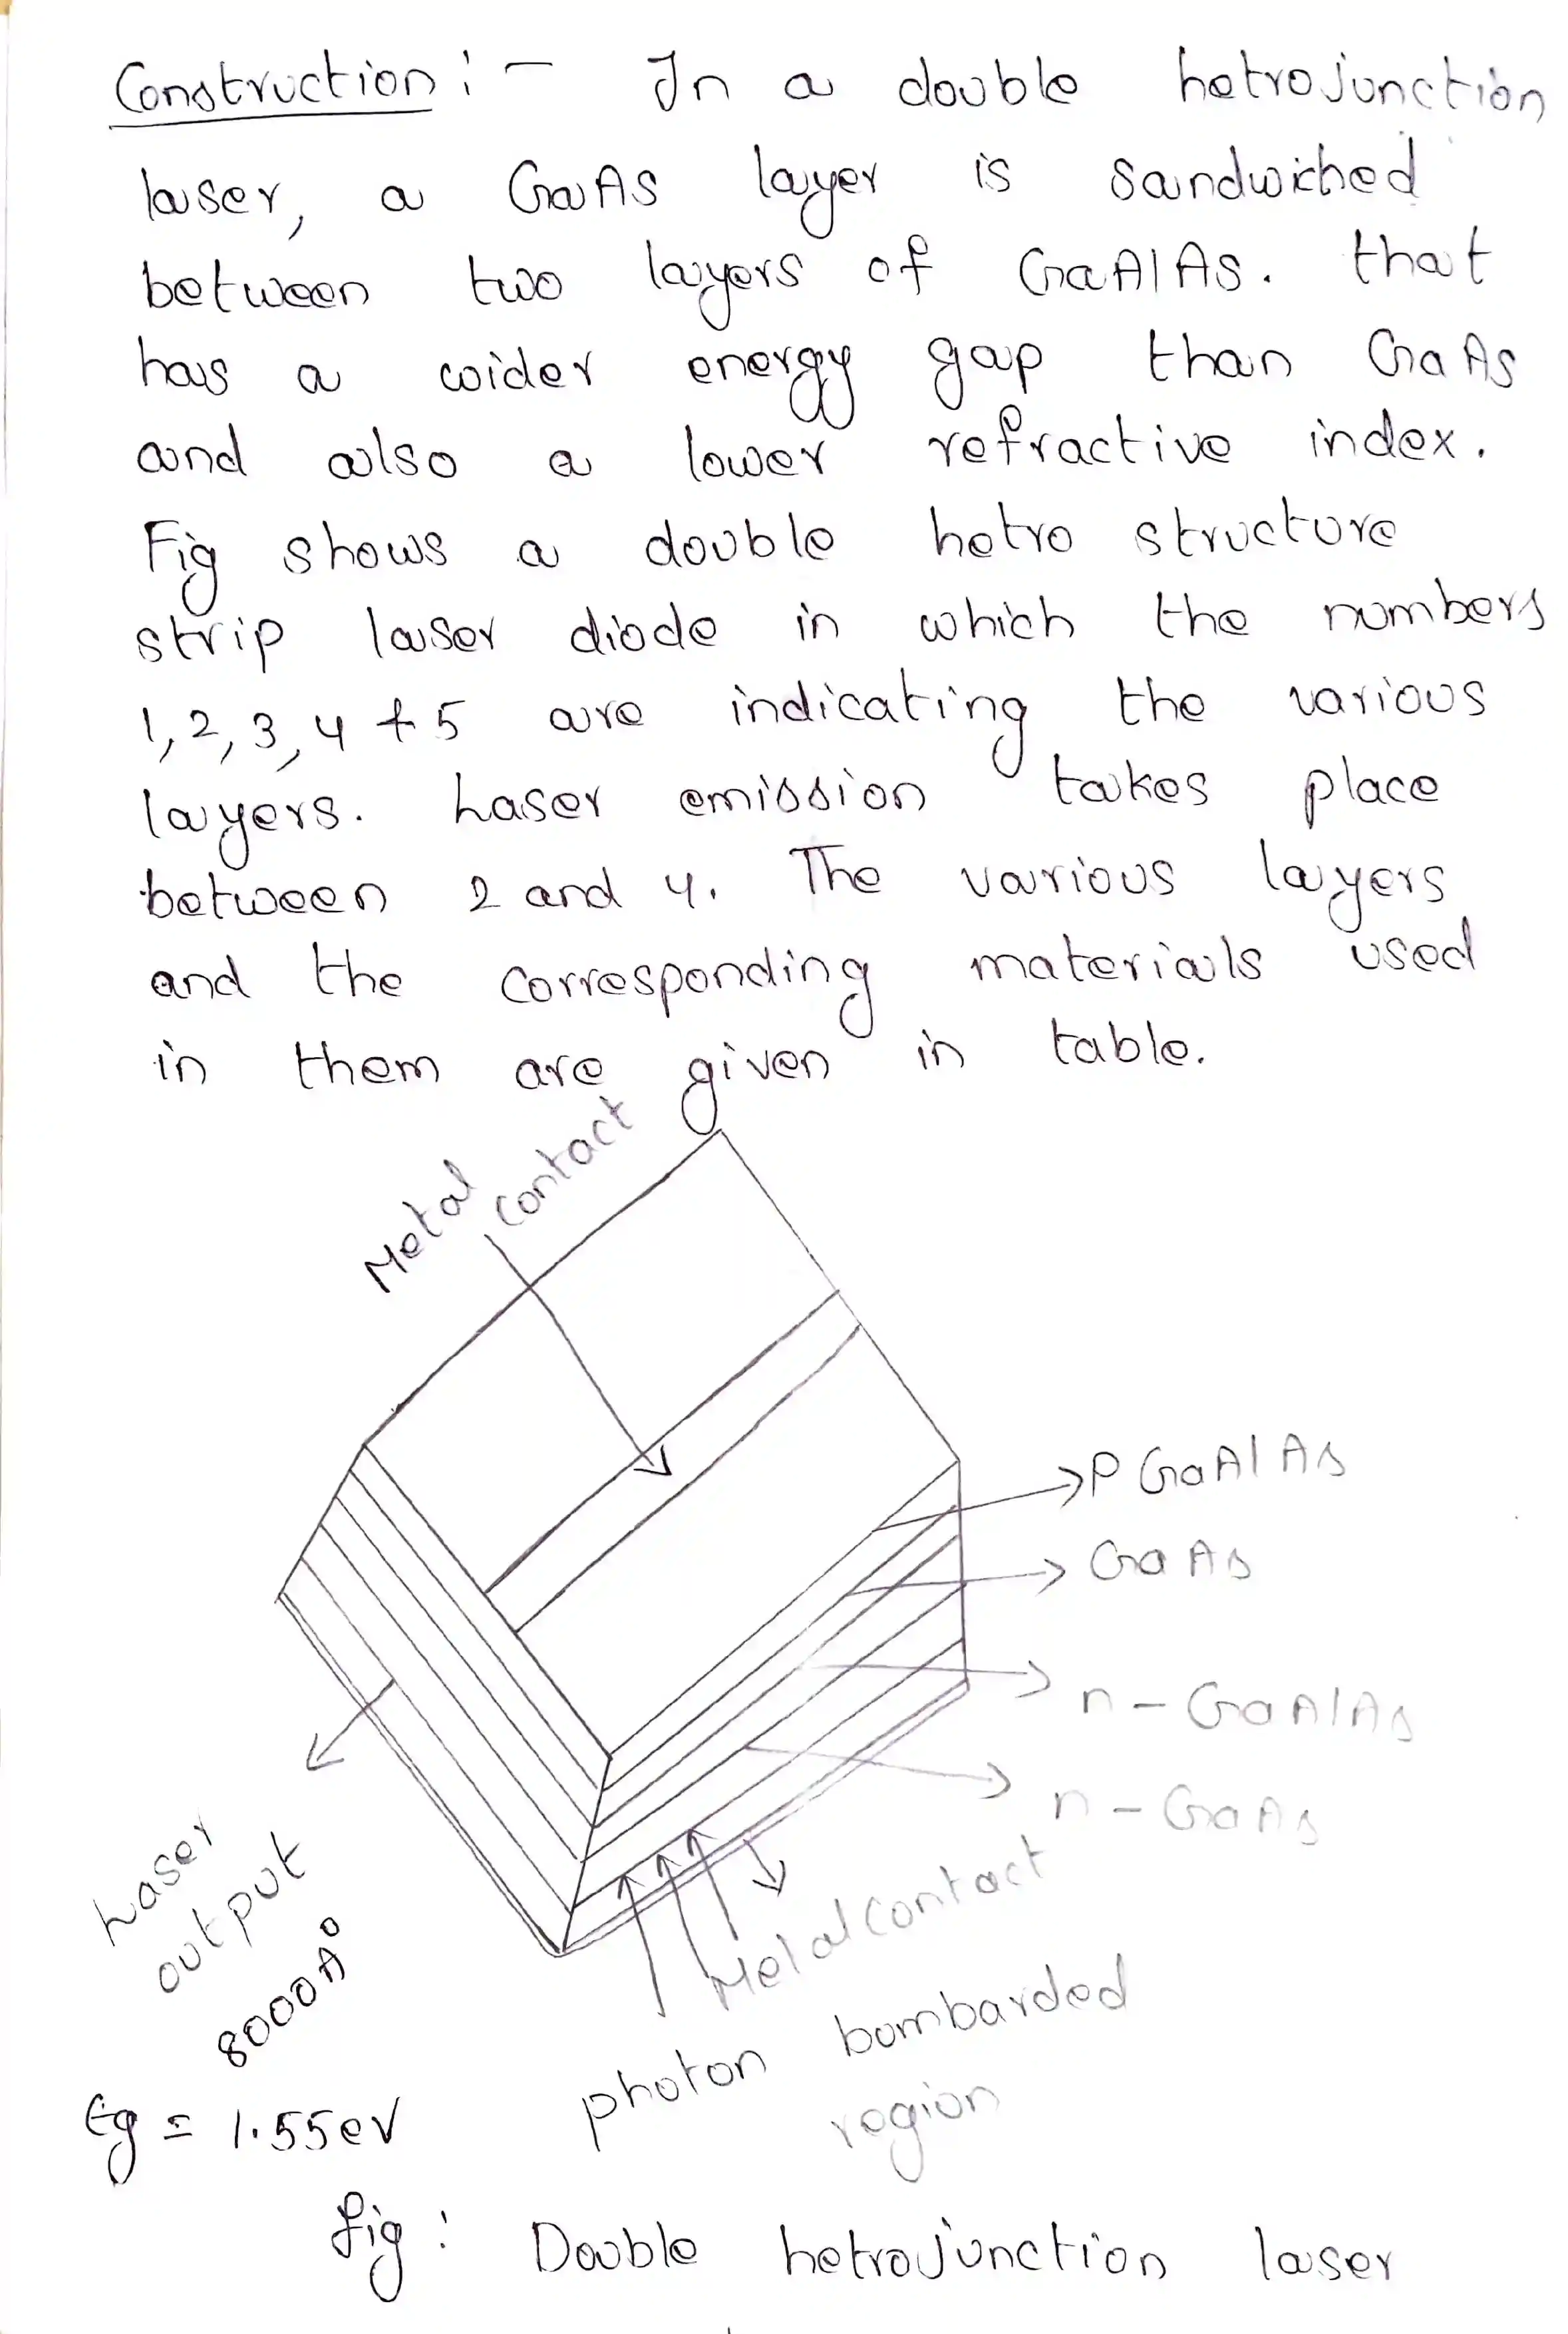 Construction :- In a double hetrojunction
laser, a GaAs layer is sandwiched
between two layers of GaAlAs. that
has a wider energy gap than GaAs
and also a lower refractive index.
Fig shows a double hetro structure
strip laser diode in which the numbers
1, 2, 3, 4 + 5 are indicating the various
layers. Laser emission takes place
between 2 and 4. The various layers
and the corresponding materials used
in them are given in table.
Metal contact
P GaAlAs
GaAs
n - GaAlAs
n - GaAs
Metal contact
Laser
output
8000A°
photon bombarded
region
Eg = 1.55eV
fig : Double hetrojunction laser